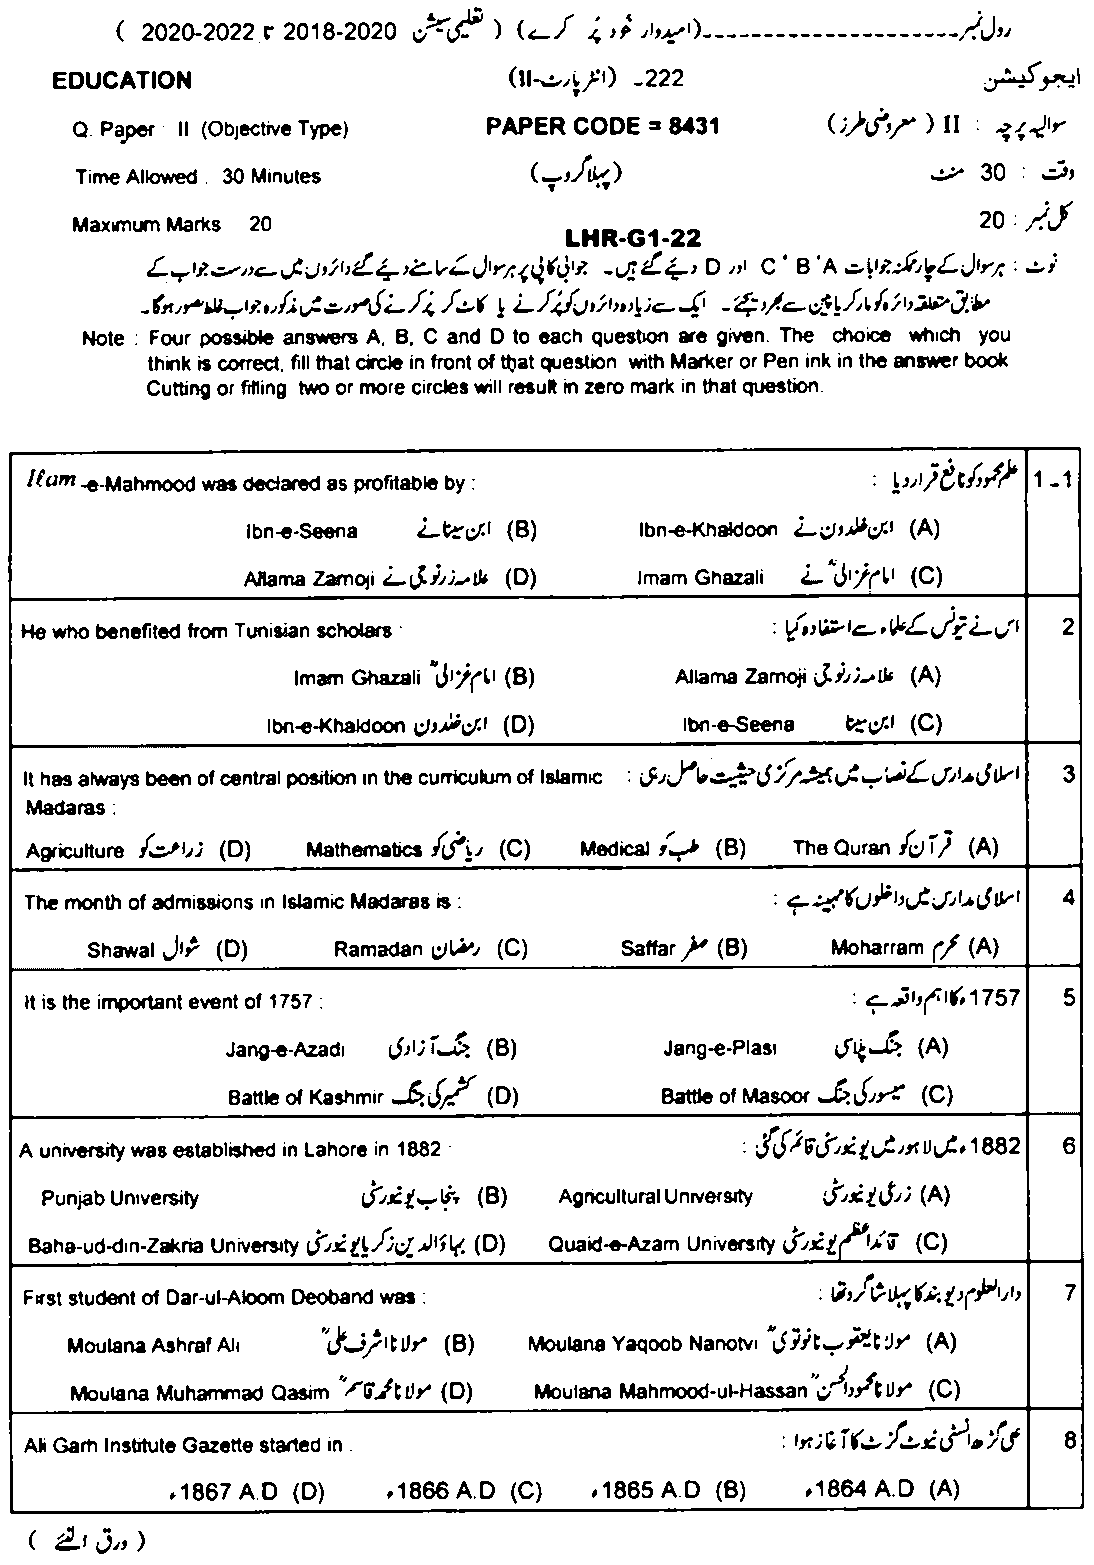 رول نمبر ـــــــــــــــــ (امیدوار خود پُر کرے) ( تعلیمی سیشن 2018-2020 تا 2020-2022 )
ایجوکیشن 222ـ (انٹر پارٹ-II) EDUCATION
سوالیہ پرچہ : II ( معروضی طرز) PAPER CODE = 8431 Q. Paper : II (Objective Type)
وقت : 30 منٹ (پہلا گروپ) Time Allowed : 30 Minutes
کل نمبر : 20 Maximum Marks 20
LHR-G1-22
نوٹ : ہر سوال کے چار ممکنہ جوابات A ، B ، C اور D دیئے گئے ہیں۔ جوابی کاپی پر ہر سوال کے سامنے دیئے گئے دائروں میں سے درست جواب کے
مطابق متعلقہ دائرہ کو مارکر یا پین سے بھر دیجئے۔ ایک سے زیادہ دائروں کو پُر کرنے یا کاٹ کر پُر کرنے کی صورت میں مذکورہ جواب غلط تصور ہوگا۔
Note : Four possible answers A, B, C and D to each question are given. The choice which you
think is correct, fill that circle in front of that question with Marker or Pen ink in the answer book
Cutting or filling two or more circles will result in zero mark in that question.
1ـ1 علم محمود کو نافع قرار دیا : Ilam-e-Mahmood was declared as profitable by :
(A) ابن خلدون نے Ibn-e-Khaldoon (B) ابن سینا نے Ibn-e-Seena
(C) امام غزالیؒ نے Imam Ghazali (D) علامہ زرنوجی نے Allama Zarnoji
2 اس نے تیونس کے علماء سے استفادہ کیا : He who benefited from Tunisian scholars :
(A) علامہ زرنوجی Allama Zarnoji (B) امام غزالیؒ Imam Ghazali
(C) ابن سینا Ibn-e-Seena (D) ابن خلدون Ibn-e-Khaldoon
3 اسلامی مدارس کے نصاب میں ہمیشہ مرکزی حیثیت حاصل رہی : It has always been of central position in the curriculum of Islamic
Madaras :
(A) قرآن کو The Quran (B) طب کو Medical (C) ریاضی کو Mathematics (D) زراعت کو Agriculture
4 اسلامی مدارس میں داخلوں کا مہینہ ہے : The month of admissions in Islamic Madaras is :
(A) محرم Moharram (B) صفر Saffar (C) رمضان Ramadan (D) شوال Shawal
5 1757ء کا اہم واقعہ ہے : It is the important event of 1757 :
(A) جنگ پلاسی Jang-e-Plasi (B) جنگ آزادی Jang-e-Azadi
(C) میسور کی جنگ Battle of Masoor (D) کشمیر کی جنگ Battle of Kashmir
6 1882ء میں لاہور میں یونیورسٹی قائم کی گئی : A university was established in Lahore in 1882 :
(A) زرعی یونیورسٹی Agricultural University (B) پنجاب یونیورسٹی Punjab University
(C) قائداعظم یونیورسٹی Quaid-e-Azam University (D) بہاؤالدین زکریا یونیورسٹی Baha-ud-din-Zakria University
7 دارالعلوم دیوبند کا پہلا شاگرد تھا : First student of Dar-ul-Aloom Deoband was :
(A) مولانا یعقوب نانوتویؒ Moulana Yaqoob Nanotvi (B) مولانا اشرف علیؒ Moulana Ashraf Ali
(C) مولانا محمود الحسنؒ Moulana Mahmood-ul-Hassan (D) مولانا محمد قاسمؒ Moulana Muhammad Qasim
8 علی گڑھ انسٹی ٹیوٹ گزٹ کا آغاز ہوا : Ali Garh Institute Gazette started in :
(A) 1864 A.D ء (B) 1865 A.D ء (C) 1866 A.D ء (D) 1867 A.D ء
( ورق الٹئے )